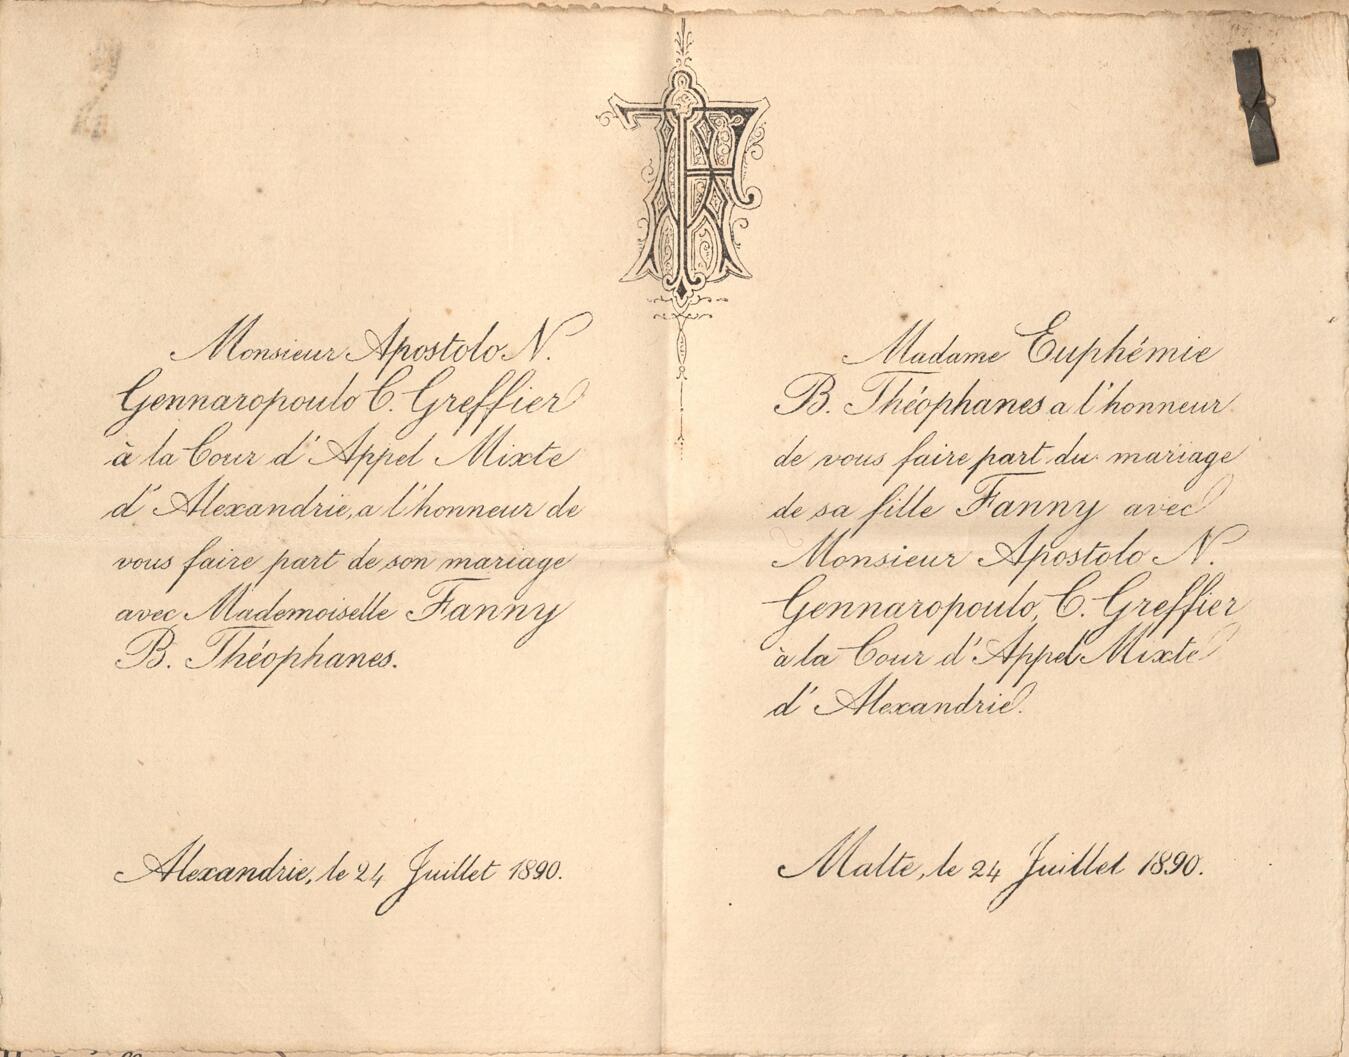 Monsieur Apostolo N.
Gennaropoulo C. Greffier
à la Cour d'Appel Mixte
d'Alexandrie, a l'honneur de
vous faire part de son mariage
avec Mademoiselle Fanny
B. Théophanes.
Alexandrie, le 24 Juillet 1890.
Madame Euphémie
B. Théophanes a l'honneur
de vous faire part du mariage
de sa fille Fanny avec
Monsieur Apostolo N.
Gennaropoulo, C. Greffier
à la Cour d'Appel Mixte
d'Alexandrie.
Malte, le 24 Juillet 1890.